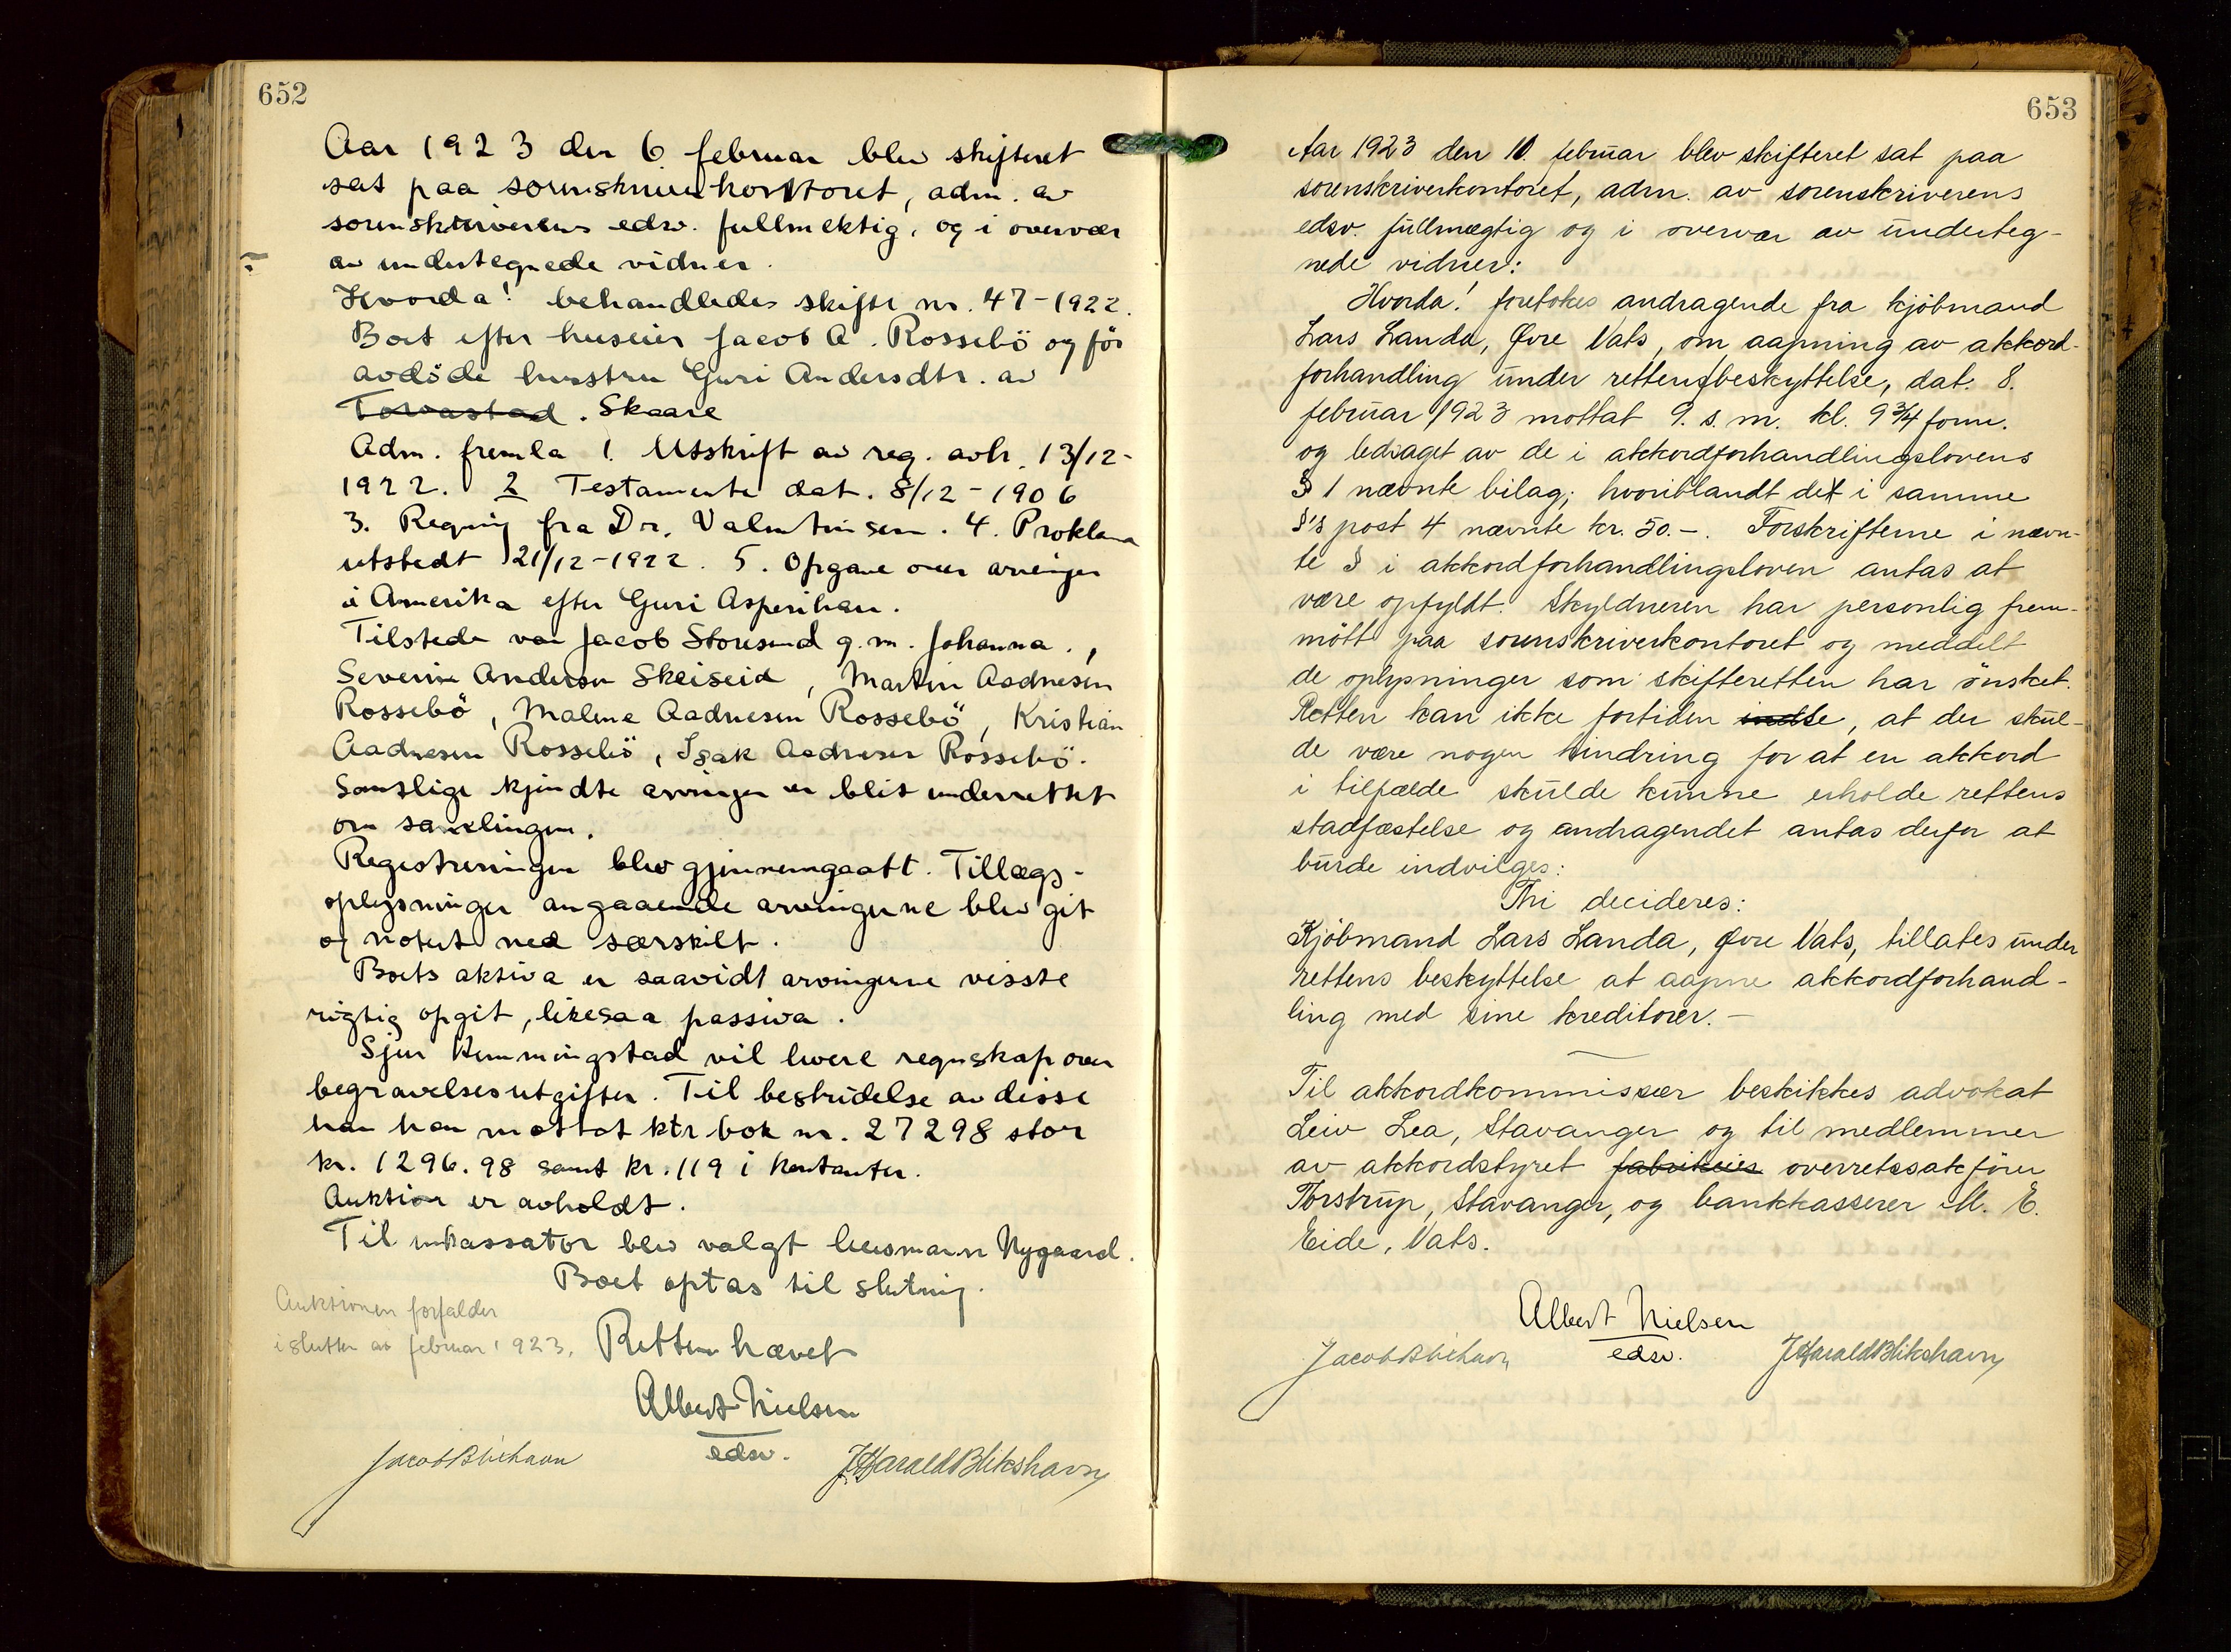 652
Aar 1923 den 6 februar blev skifteret
sat paa sorenskriverkontoret, adm. av
sorenskriverens edsv. fullmektig, og i overvær
av undertegnede vidner.
Hvorda! behandledes skifte nr. 47-1922.
Boet efter huseier Jacob A. Rossebö og før
avdöde hustru Guri Andersdtr. av
Torvastad. Skaare
Adm. fremla 1. Utskrift av reg. avh. 13/12-
1922. 2 Testamente dat. 8/12-1906
3. Regning fra Dr. Valentinsen. 4. Proklama
utstedt 21/12-1922. 5. Opgave over arvinger
i Amerika efter Guri Asperihau.
Tilstede var Jacob Storesund g.m. Johanna.,
Severine Andersen Skeiseid, Martin Aadnesen
Rossebö, Malene Aadnesen Rossebö, Kristian
Aadnesen Rossebö, Isak Aadnesen Rossebö.
Samtlige kjendte arvinger er blit underrettet
om samlingen.
Registreringen blev gjennemgaatt. Tillægs-
oplysninger angaaende arvingerne blev git
og notert ned særskilt.
Boets aktiva er saavidt arvingerne visste
rigtig opgit, likesaa passiva.
Sjur Hemmingstad vil levere regnskap over
begravelsesutgifter. Til bestridelse av disse
har han mottat ktr bok nr. 27298 stor
kr. 1296.98 samt kr. 119 i kontanter.
Auktion er avholdt.
Til inkassator blev valgt lensmann Nygaard.
Boet optas til slutning.
Auktionen forfalder
i slutten av februar 1923.
Retten hævet
Albert Nielsen
edsv.
Jacob Blikhavn
J. Harald Blikshavn
653
Aar 1923 den 10. februar blev skifteret sat paa
sorenskriverkontoret, adm. av sorenskriverens
edsv. fullmægtig og i overvær av underteg-
nede vidner:
Hvorda! foretokes andragende fra kjöbmand
Lars Landa, Øvre Vats, om aapning av akkord-
forhandling under rettens beskyttelse, dat. 8.
februar 1923 mottat 9. s. m. kl. 9 3/4 form.
og ledsaget av de i akkordforhandlingslovens
§ 1 nævnte bilag; hvoriblandt det i samme
§'s post 4 nævnte kr. 50.-. Forskrifterne i nævn-
te § i akkordforhandlingsloven antas at
være opfyldt. Skyldneren har personlig frem-
mött paa sorenskriverkontoret og meddelt
de oplysninger som skifteretten har önsket.
Retten kan ikke fortiden indse, at der skul-
de være nogen hindring for at en akkord
i tilfælde skulde kunne erholde rettens
stadfæstelse og andragendet antas derfor at
burde indvilges:
Thi decideres:
Kjöbmand Lars Landa, Øvre Vats, tillates under
rettens beskyttelse at aapne akkordforhand-
ling med sine kreditorer.-
Til akkordkommissær beskikkes advokat
Leiv Lea, Stavanger og til medlemmer
av akkordstyret fabrikeier overretssakförer
Torstrup, Stavanger, og bankkasserer M. E.
Eide, Vats.
Albert Nielsen
edsv.
Jacob Blikhavn
J Harald Blikshavn